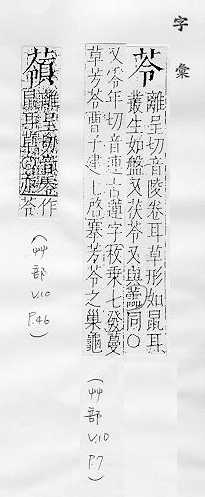 字彙
苓
離呈切音陵卷耳草形如鼠耳
叢生如盤又茯苓又與蘦同○
又零年切音連古蓮字枚乗七發蔓
草芳苓曹子建七啓寒芳苓之巢龜
(艸部 V.10 P.7)
離呈切音
鼠耳草 苓
(艸部 V.10 P.46)